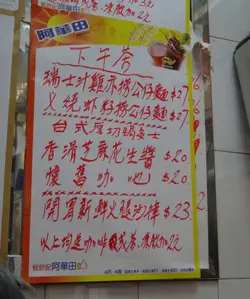 凍飲加2元
阿華田
下午茶
瑞士汁雞亦撈公仔麵$27
义燒虾籽撈公仔麵$27
台式厚切多士
香滑芝麻花生醬 $20
懷舊咖吔 $20
開胃新鮮火腿沙律 $23
以上均送咖啡或茶,凍飲加2元
餐飲配阿華田